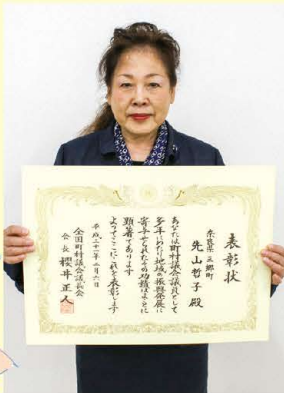 表彰状
奈良県三郷町
先山哲子殿
あなたは町村議会議員として
多年にわたり地域の振興発展に
寄与せられたその功績はまことに
顕著であります
よってここにこれを表彰します
平成三十一年二月六日
全国町村議会議長会
会長 櫻井正人